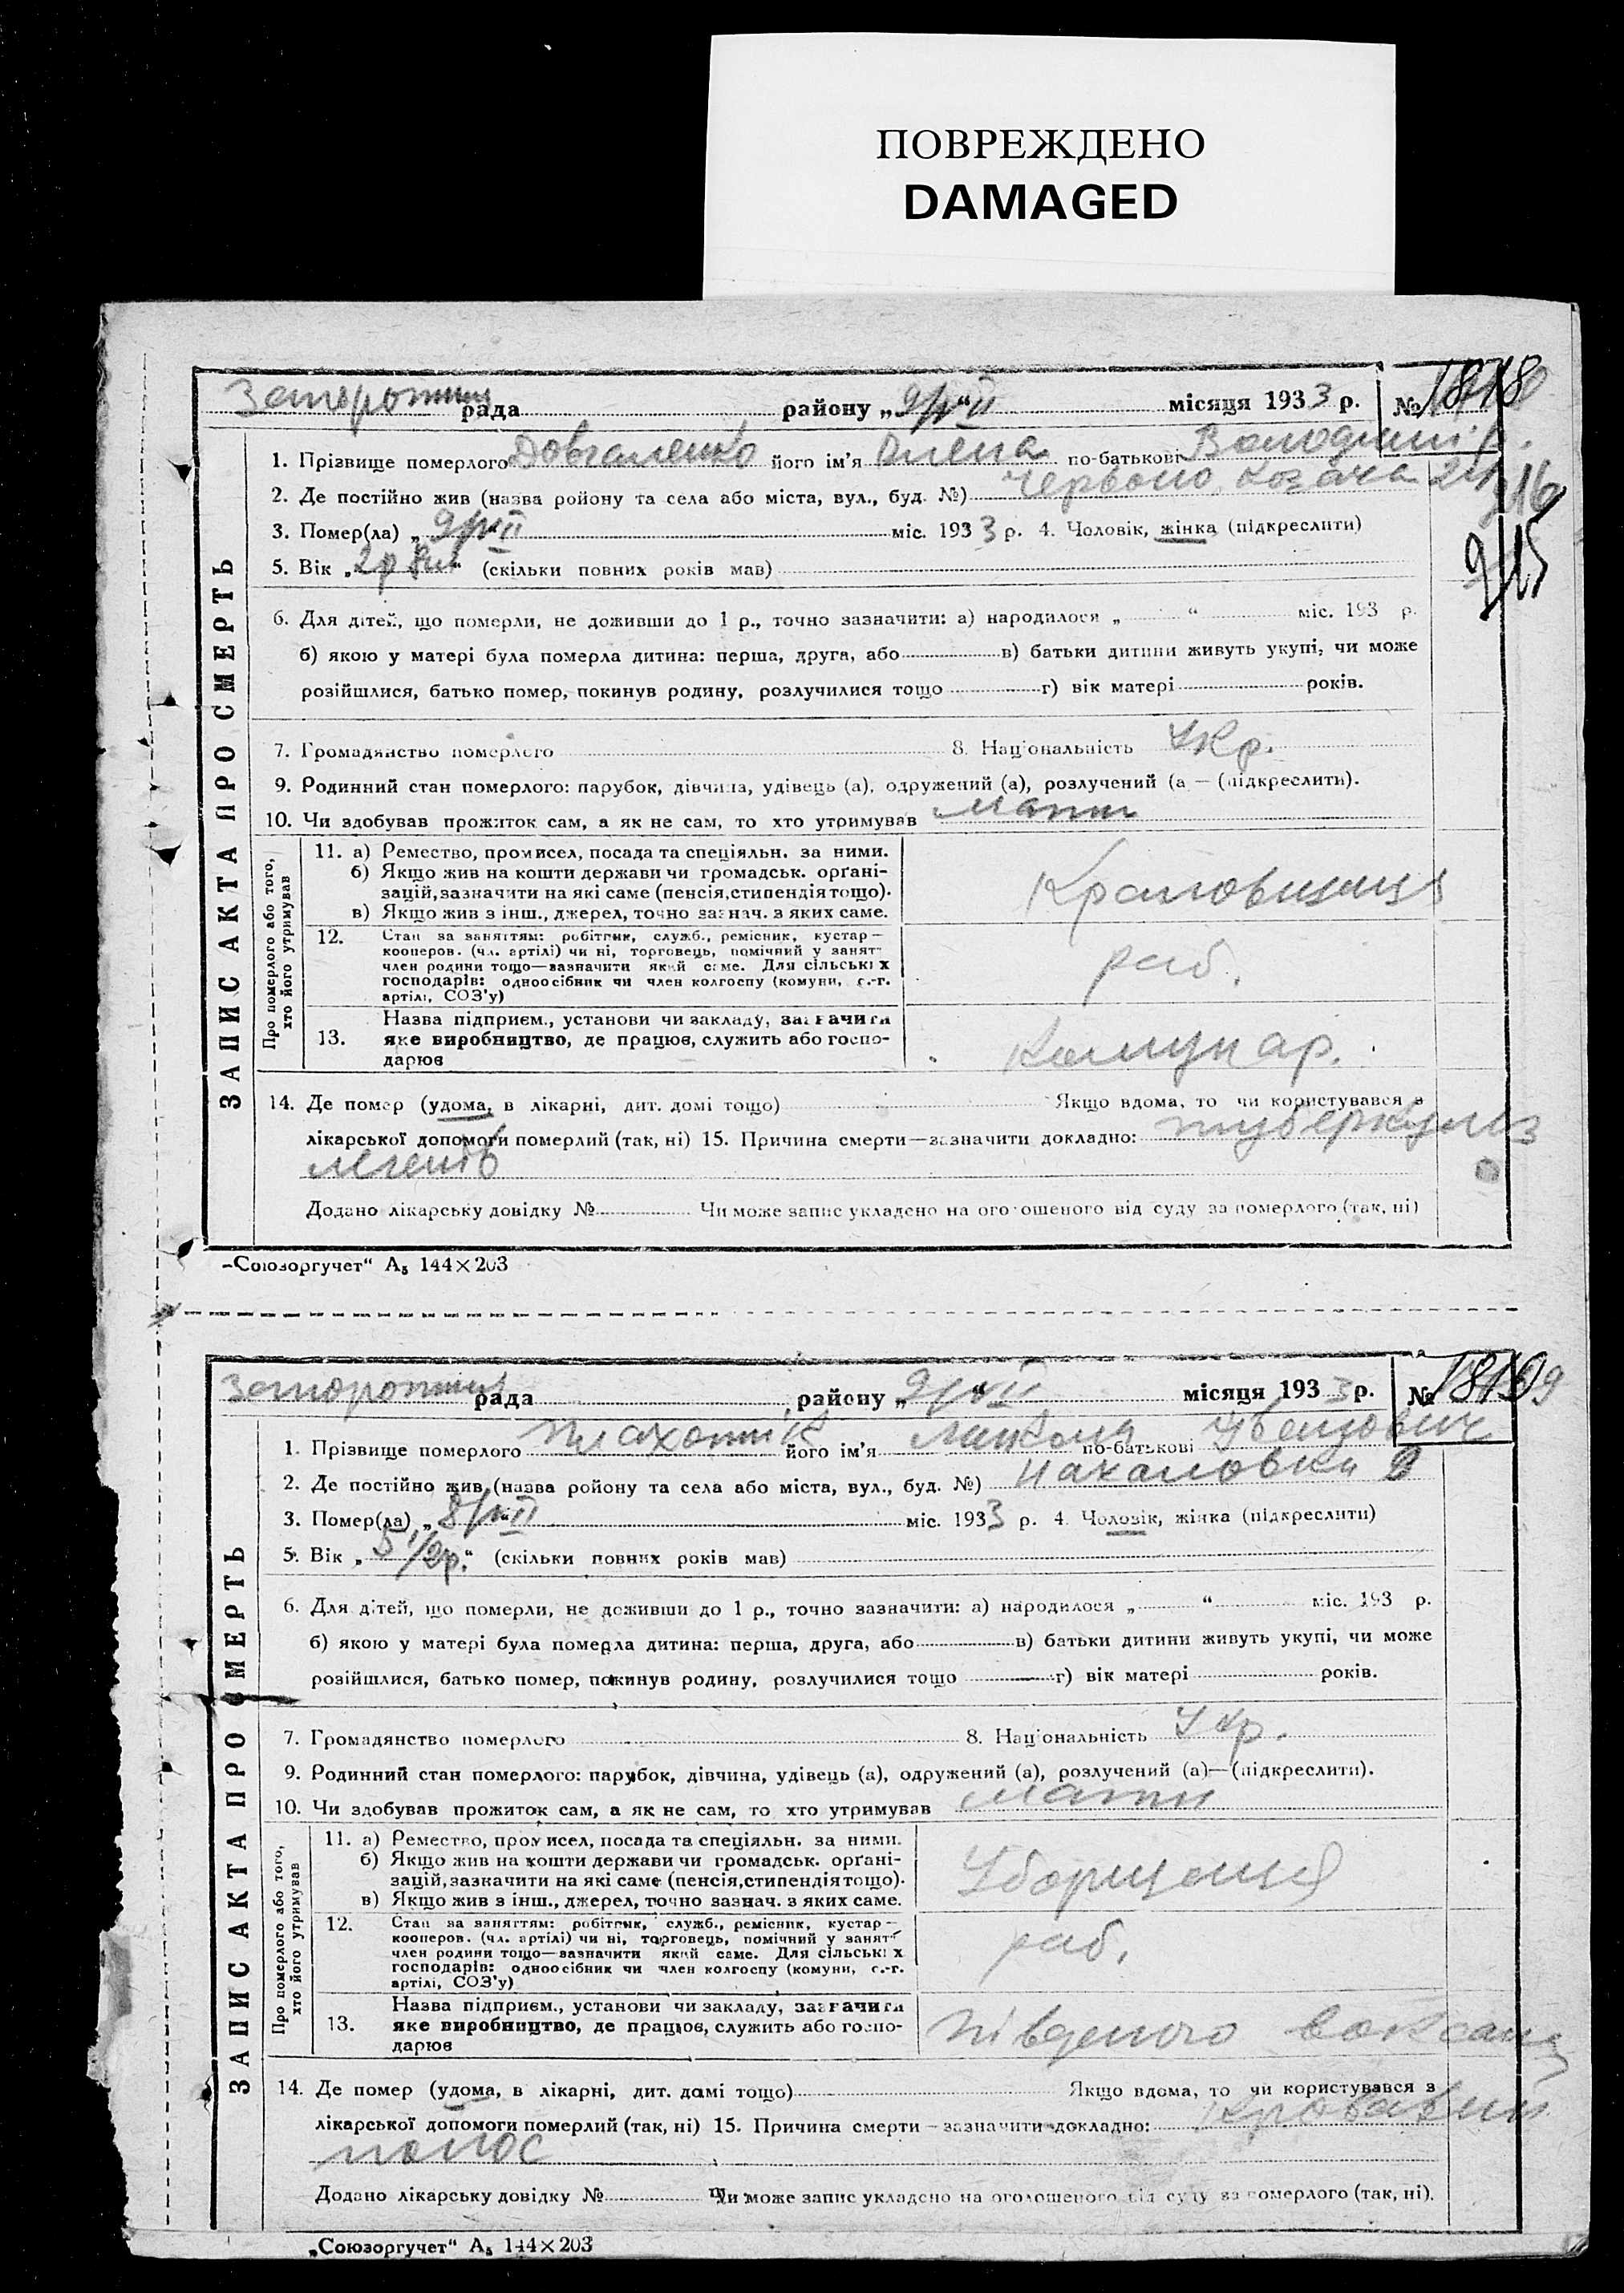 ПОВРЕЖДЕНО
DAMAGED
рада району „9/VII“ місяця 1933 р. № 1818
1. Прізвище померлого Довгаленко його ім'я Олена по-батькові
2. Де постійно жив (назва ройону та села або міста, вул., буд. №) Червоно Козача
3. Помер(ла) „9/VII міс. 1933 р. 4. Чоловік, жінка (підкреслити)
5. Вік „2р 8м“ (скільки повних років мав)
6. Для дітей, що померли, не доживши до 1 р., точно зазначити: а) народилося „ “ міс. 193 р.
б) якою у матері була померла дитина: перша, друга, або в) батьки дитини живуть укупі, чи може
розійшлися, батько помер, покинув родину, розлучилися тощо г) вік матері років.
7. Громадянство померлого 8. Національність Укр.
9. Родинний стан померлого: парубок, дівчина, удівець (а), одружений (а), розлучений (а — (підкреслити).
10. Чи здобував прожиток сам, а як не сам, то хто утримував мати
ЗАПИС АКТА ПРО СМЕРТЬ
Про померлого або того, хто його утримував
11. а) Ремество, промисел, посада та спеціяльн. за ними.
б) Якщо жив на кошти держави чи громадськ. орґані-
зацій, зазначити на які саме (пенсія, стипендія тощо).
в) Якщо жив з інш., джерел, точно зазнач. з яких саме.
12. Стан за заняттям: робітник, служб., ремісник, кустар—
кооперов. (чл. артілі) чи ні, торговець, помічний у занят-
член родини тощо—зазначити який саме. Для сільських
господарів: одноосібник чи член колгоспу (комуни, с.-г.
артілі, СОЗ'у)
раб.
13. Назва підприєм., установи чи закладу, зазначити
яке виробництво, де працює, служить або госпо-
дарює
Комунар.
14. Де помер (удома, в лікарні, дит. домі тощо) Якщо вдома, то чи користувався з
лікарської допомоги померлий (так, ні) 15. Причина смерти—зазначити докладно: туберкульоз
легенів
Додано лікарську довідку № Чи може запис укладено на оголошеного від суду за померлого (так, ні)
„Союзоргучет“ А5 144×203
рада району „9/VII“ місяця 1933 р. № 1819
1. Прізвище померлого Плахотнік його ім'я Микола по-батькові
2. Де постійно жив (назва ройону та села або міста, вул., буд. №) Нахаловка 9
3. Помер(ла) „8/VII“ міс. 1933 р. 4. Чоловік, жінка (підкреслити)
5. Вік „5 1/2р.“ (скільки повних років мав)
6. Для дітей, що померли, не доживши до 1 р., точно зазначити: а) народилося „ “ міс. 193 р.
б) якою у матері була померла дитина: перша, друга, або в) батьки дитини живуть укупі, чи може
розійшлися, батько помер, покинув родину, розлучилися тощо г) вік матері років.
7. Громадянство померлого 8. Національність Укр.
9. Родинний стан померлого: парубок, дівчина, удівець (а), одружений (а), розлучений (а)—(підкреслити).
10. Чи здобував прожиток сам, а як не сам, то хто утримував мати
ЗАПИС АКТА ПРО СМЕРТЬ
Про померлого або того, хто його утримував
11. а) Ремество, промисел, посада та спеціяльн. за ними.
б) Якщо жив на кошти держави чи громадськ. орґані-
зацій, зазначити на які саме (пенсія, стипендія тощо).
в) Якщо жив з інш., джерел, точно зазнач. з яких саме.
Уборщиця
12. Стан за заняттям: робітник, служб., ремісник, кустар—
кооперов. (чл. артілі) чи ні, торговець, помічний у занят-
член родини тощо—зазначити який саме. Для сільських
господарів: одноосібник чи член колгоспу (комуни, с.-г.
артілі, СОЗ'у)
раб.
13. Назва підприєм., установи чи закладу, зазначити
яке виробництво, де працює, служить або госпо-
дарює
Південого вокзалу
14. Де помер (удома, в лікарні, дит. домі тощо) Якщо вдома, то чи користувався з
лікарської допомоги померлий (так, ні) 15. Причина смерти—зазначити докладно: Кровавий
понос
Додано лікарську довідку № Чи може запис укладено на оголошеного від суду за померлого (так, ні).
„Союзоргучет“ А5 144×203